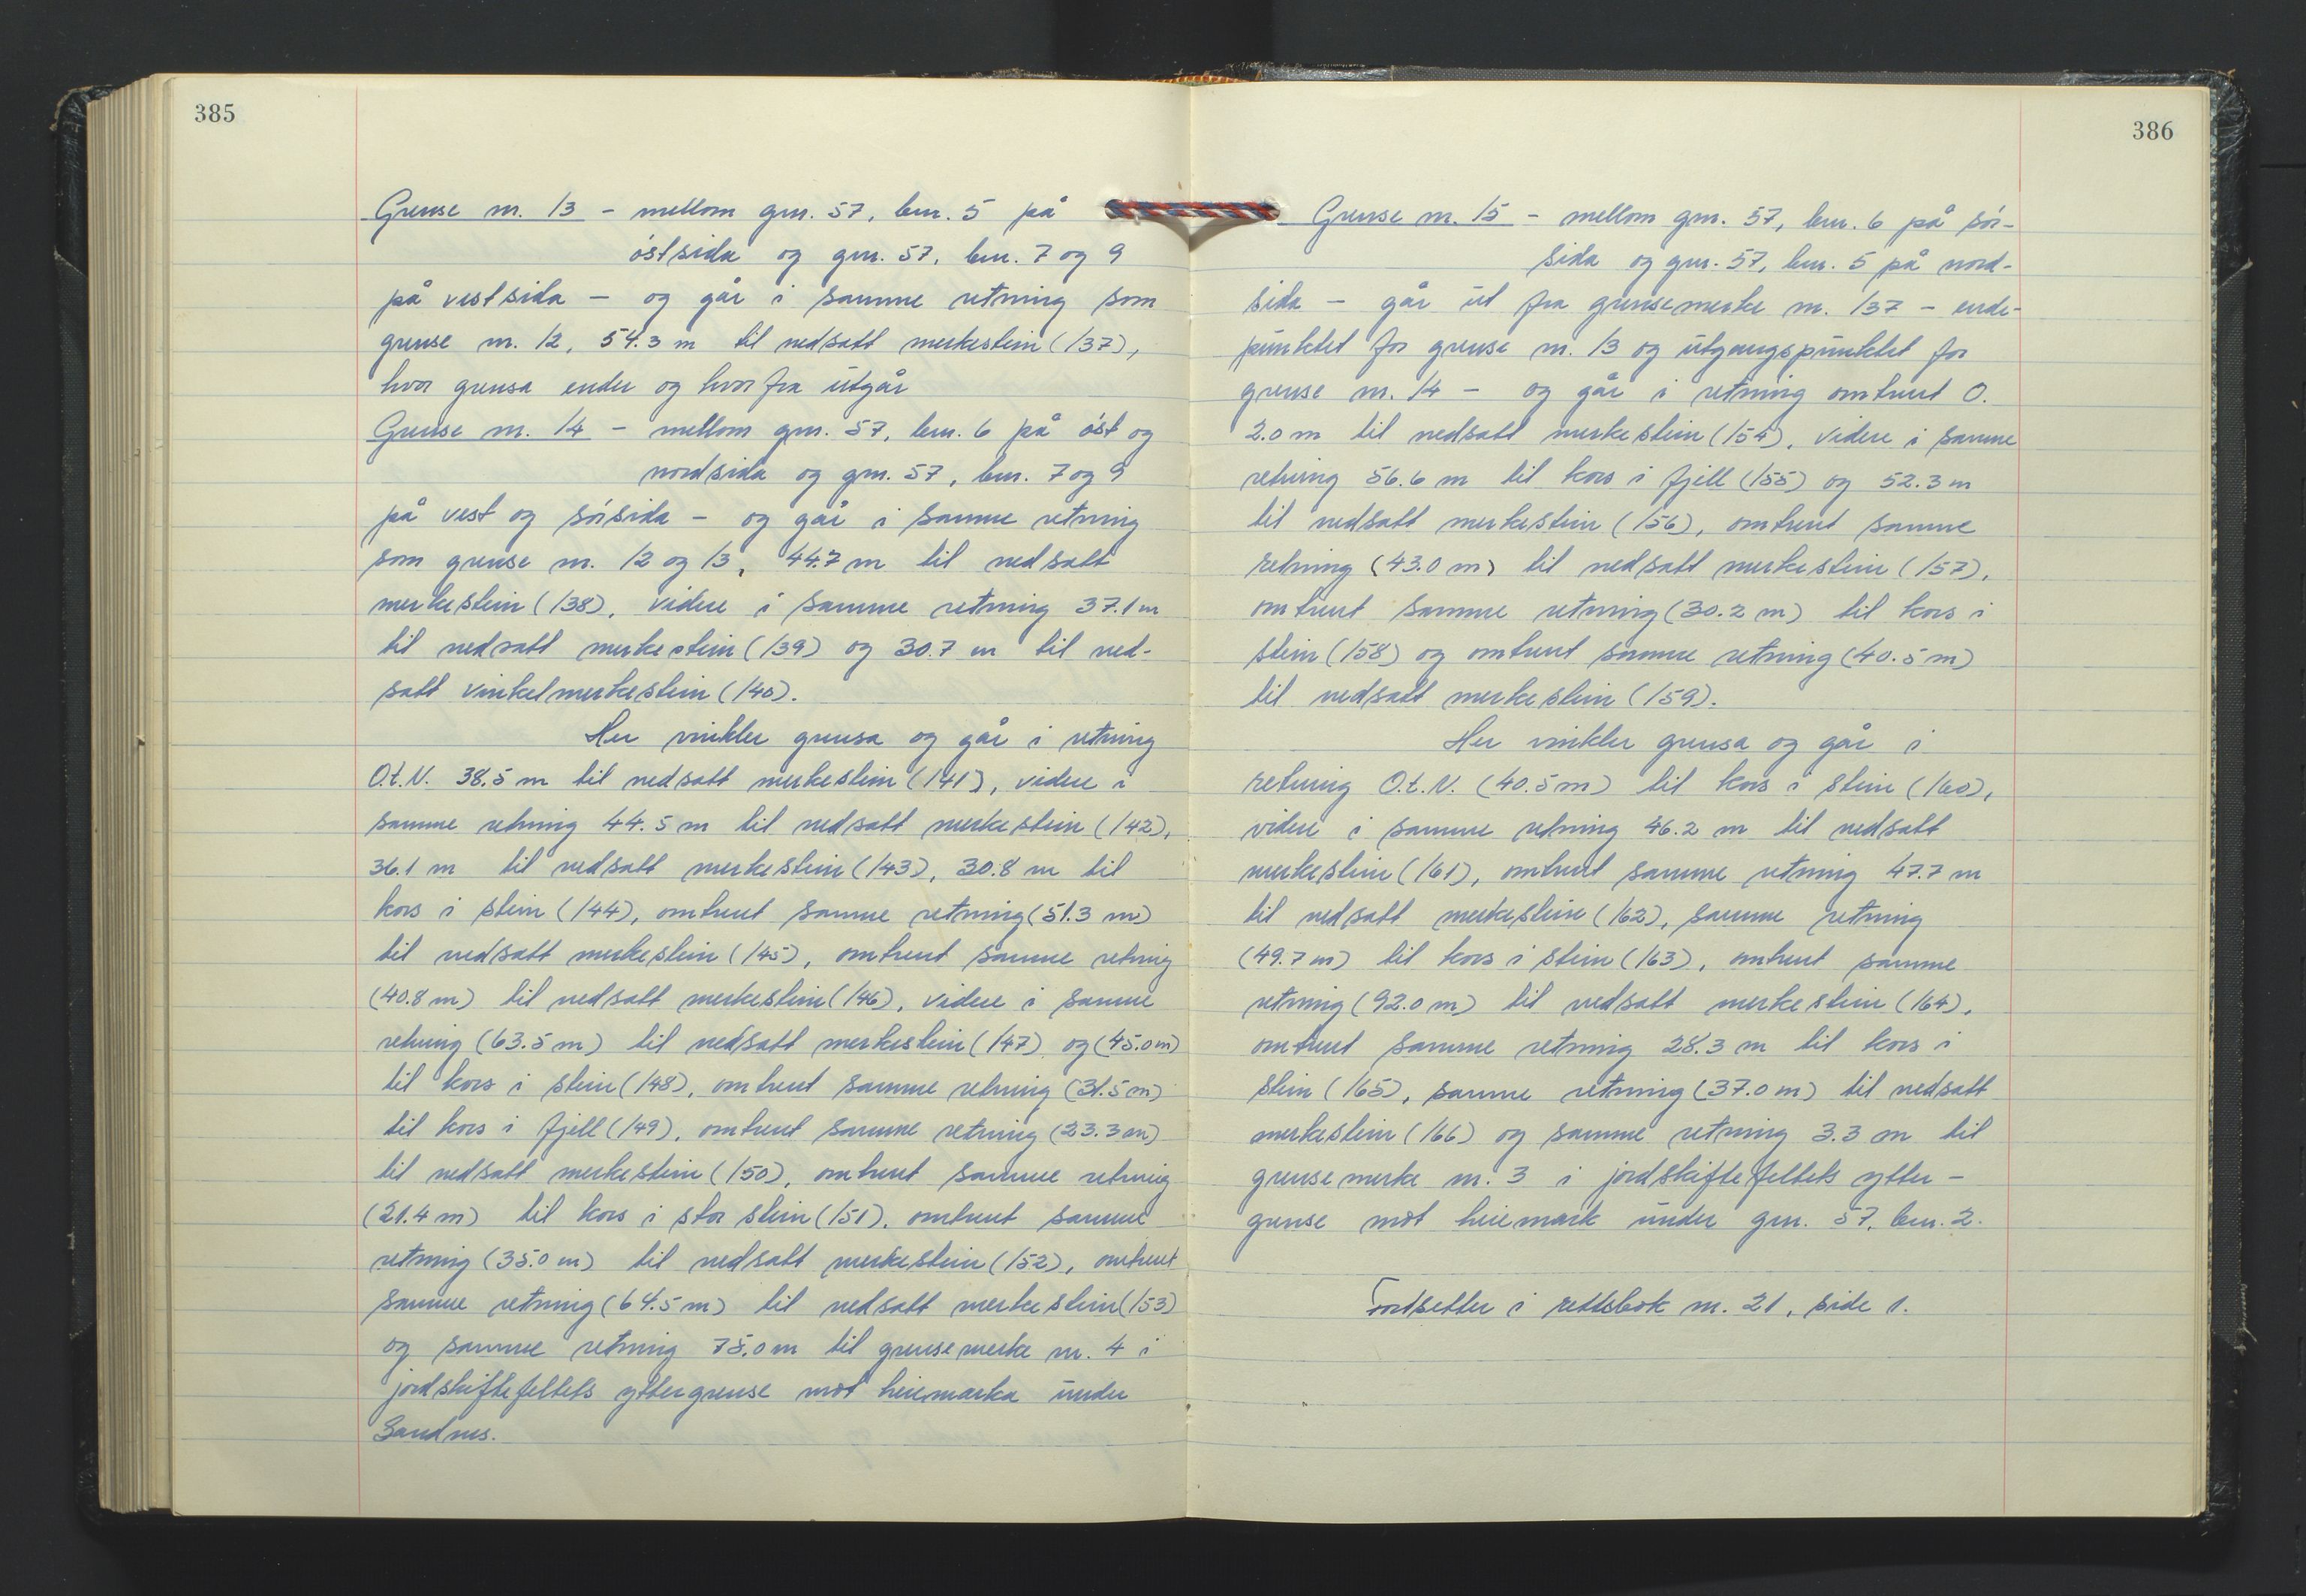 385
Grense nr. 13 - mellom gnr. 57, bnr. 5 på
østsida og gnr. 57, bnr. 7 og 9
på vestsida - og går i samme retning som
grense nr. 12, 54.3 m til nedsatt merkestein (137),
hvor grensa ender og hvorfra utgår
Grense nr. 14 - mellom gnr. 57, bnr. 6 på øst og
nordsida og gnr. 57, bnr. 7 og 9
på vest og sørsida - og går i samme retning
som grense nr. 12 og 13, 44.7 m til nedsatt
merkestein (138), videre i samme retning 37.1 m
til nedsatt merkestein (139) og 30.7 m til ned-
satt vinkelmerkestein (140).
Her vinkler grensa og går i retning
O.t.N. 38.5 m til nedsatt merkestein (141), videre i
samme retning 44.5 m til nedsatt merkestein (142),
36.1 m til nedsatt merkestein (143), 30.8 m til
kors i stein (144), omtrent samme retning (51.3 m)
til nedsatt merkestein (145), omtrent samme retning
(40.8 m) til nedsatt merkestein (146), videre i samme
retning (63.5 m) til nedsatt merkestein (147) og (45.0 m)
til kors i stein (148), omtrent samme retning (31.5 m)
til kors i fjell (149), omtrent samme retning (23.3 m)
til nedsatt merkestein (150), omtrent samme retning
(21.4 m) til kors i stor stein (151), omtrent samme
retning (35.0 m) til nedsatt merkestein (152), omtrent
samme retning (64.5 m) til nedsatt merkestein (153)
og samme retning 75.0 m til grensemerke nr. 4 i
jordskiftefeltets yttergrense mot heiemarka under
Sandnes.
386
Grense nr. 15 - mellom gnr. 57, bnr. 6 på sør-
sida og gnr. 57, bnr. 5 på nord-
sida - går ut fra grensemerke nr. 137 - ende-
punktet for grense nr. 13 og utgangspunktet for
grense nr. 14 - og går i retning omtrent O.
2.0 m til nedsatt merkestein (154), videre i samme
retning 56.6 m til kors i fjell (155) og 52.3 m
til nedsatt merkestein (156), omtrent samme
retning (43.0 m) til nedsatt merkestein (157),
omtrent samme retning (30.2 m) til kors i
stein (158) og omtrent samme retning (40.5 m)
til nedsatt merkestein (159).
Her vinkler grensa og går i
retning O.t.N. (40.5 m) til kors i stein (160),
videre i samme retning 46.2 m til nedsatt
merkestein (161), omtrent samme retning 47.7 m
til nedsatt merkestein (162), samme retning
(49.7 m) til kors i stein (163), omtrent samme
retning (92.0 m) til nedsatt merkestein (164),
omtrent samme retning 28.3 m til kors i
stein (165), samme retning (37.0 m) til nedsatt
merkestein (166) og samme retning 3.3 m til
grensemerke nr. 3 i jordskiftefeltets ytter-
grense mot heiemark under gnr. 57, bnr. 2.
Fortsetter i rettsbok nr. 21, side 1.